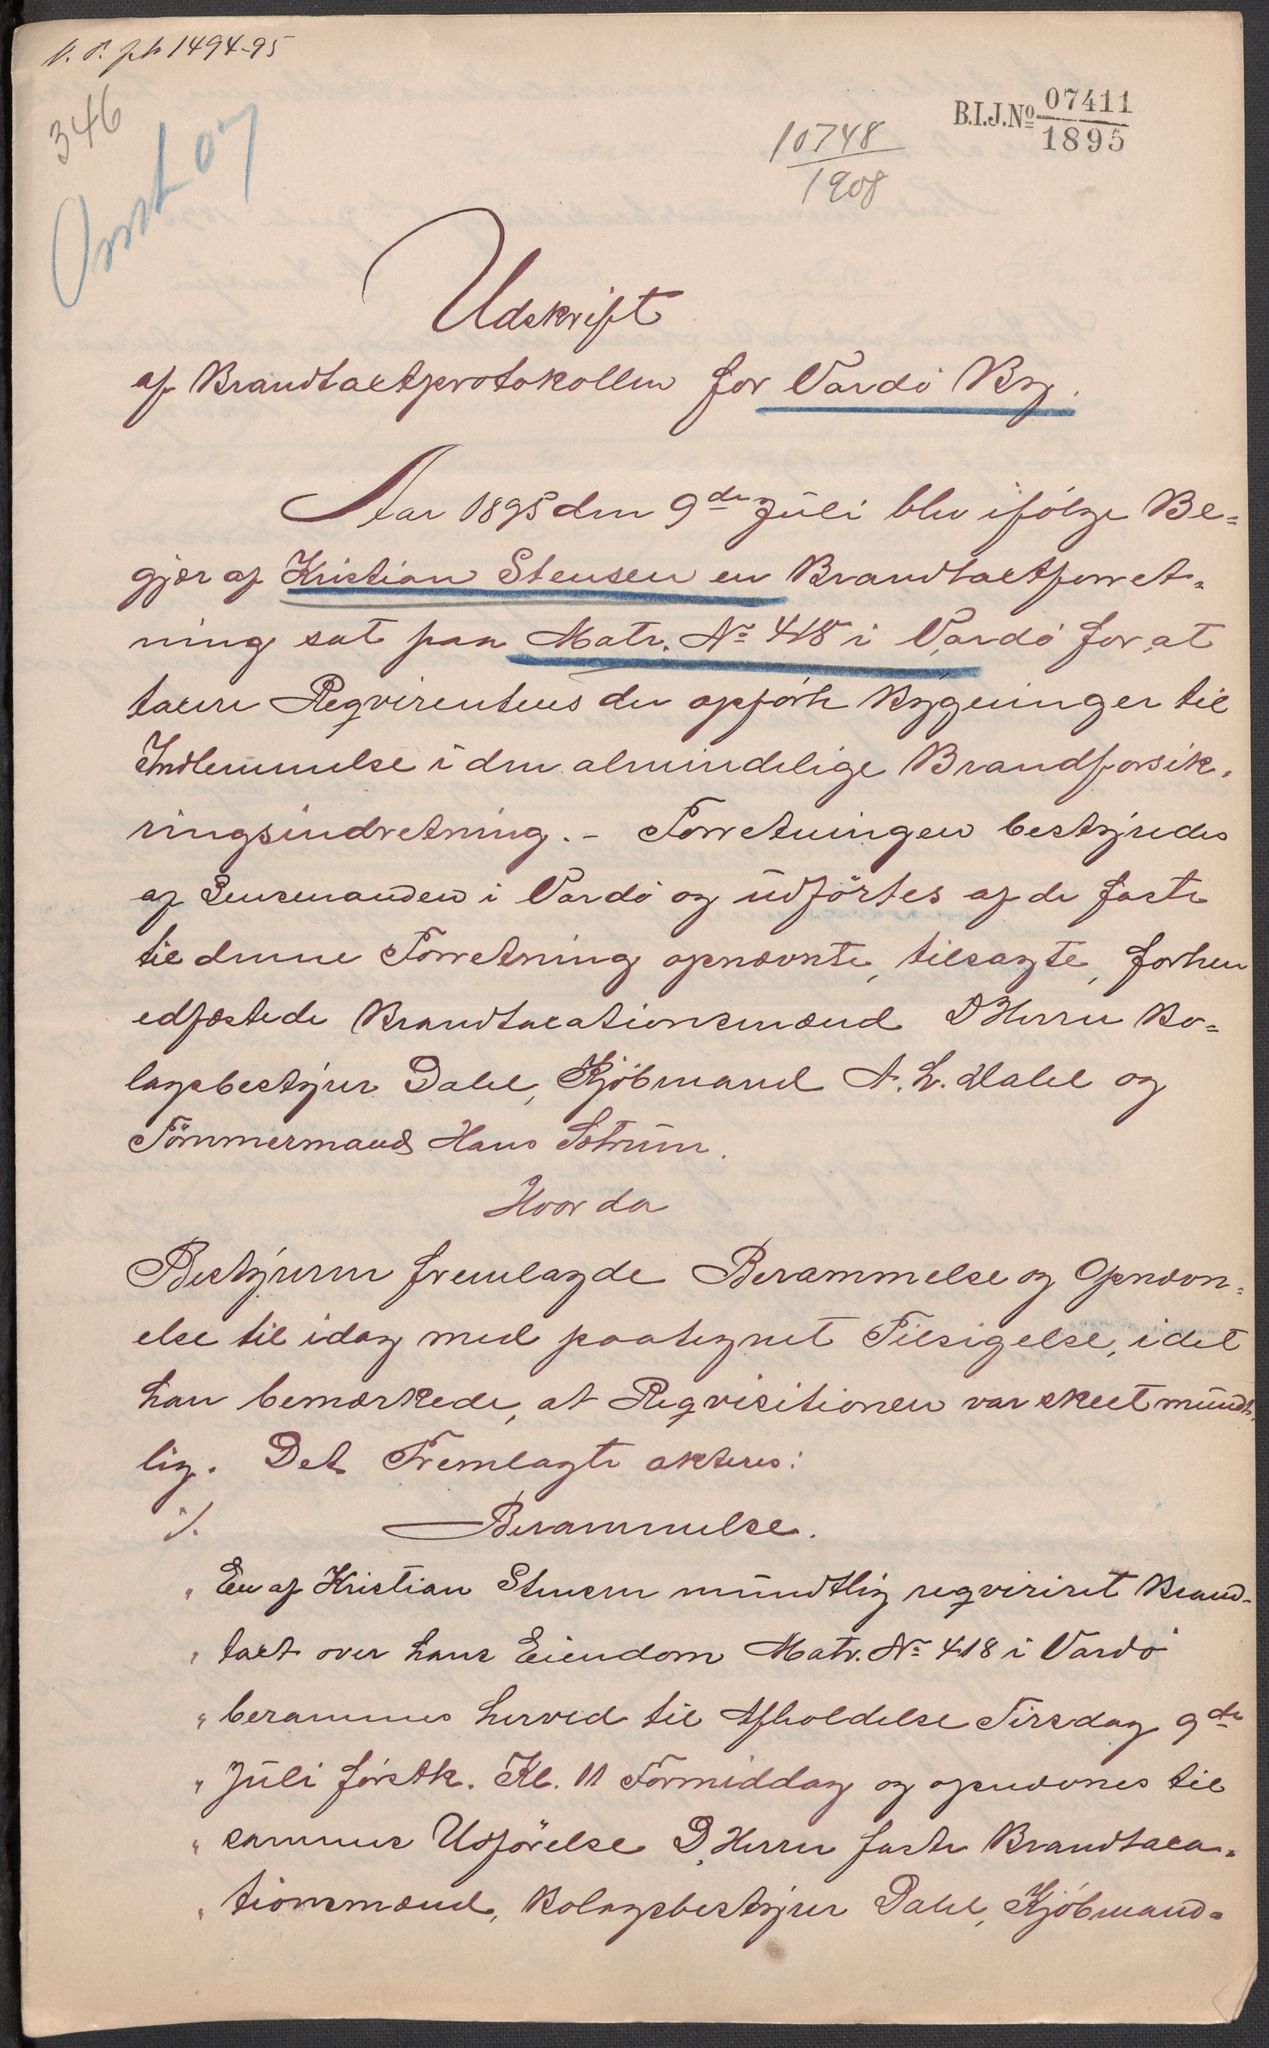 1494-95
346
Omst 07
B.I.J.No 07411
1895
10748
1908
Udskrift
af Brandtaxtprotokollen for Vardö By.
Aar 1895 den 9de Juli blev ifölge Be-
gjær af Kristian Stensen en Brandtaxtforret-
ning sat paa Matr. No 418 i Vardö for at
taxere Reqvirentens der opförte Bygninger til
Indlemmelse i den almindelige Brandforsik-
ringsindretning. - Forretningen bestyredes
af Lensmanden i Vardö og udförtes af de faste
til denne Forretning opnævnte, tilsagte, forhen
edfæstede Brandtaxationsmænd D'Herrer Bo-
lagsbestyrer Dahl, Kjöbmand A. L. Dahl og
Tömmermand Hans Ström.
Hvorda
Bestyreren fremlagde Berammelse og Opnævn-
else til idag med paategnet Tilsigelse, idet
han bemærkede, at Reqvisitionen var skeet mundt-
lig. Det Fremlagte akteres:
1/. Berammelse.
" En af Kristian Stensen mundtlig reqvireret Brand-
" taxt over hans Eiendom Matr. No 418 i Vardö
" berammes herved til Afholdelse Tirsdag 9de
" Juli förstk. Kl. 11 Formiddag og opnævnes til
" sammes Udförelse D'Herrer faste Brandtaxa-
" tionsmænd, Bolagsbestyrer Dahl, Kjöbmand-